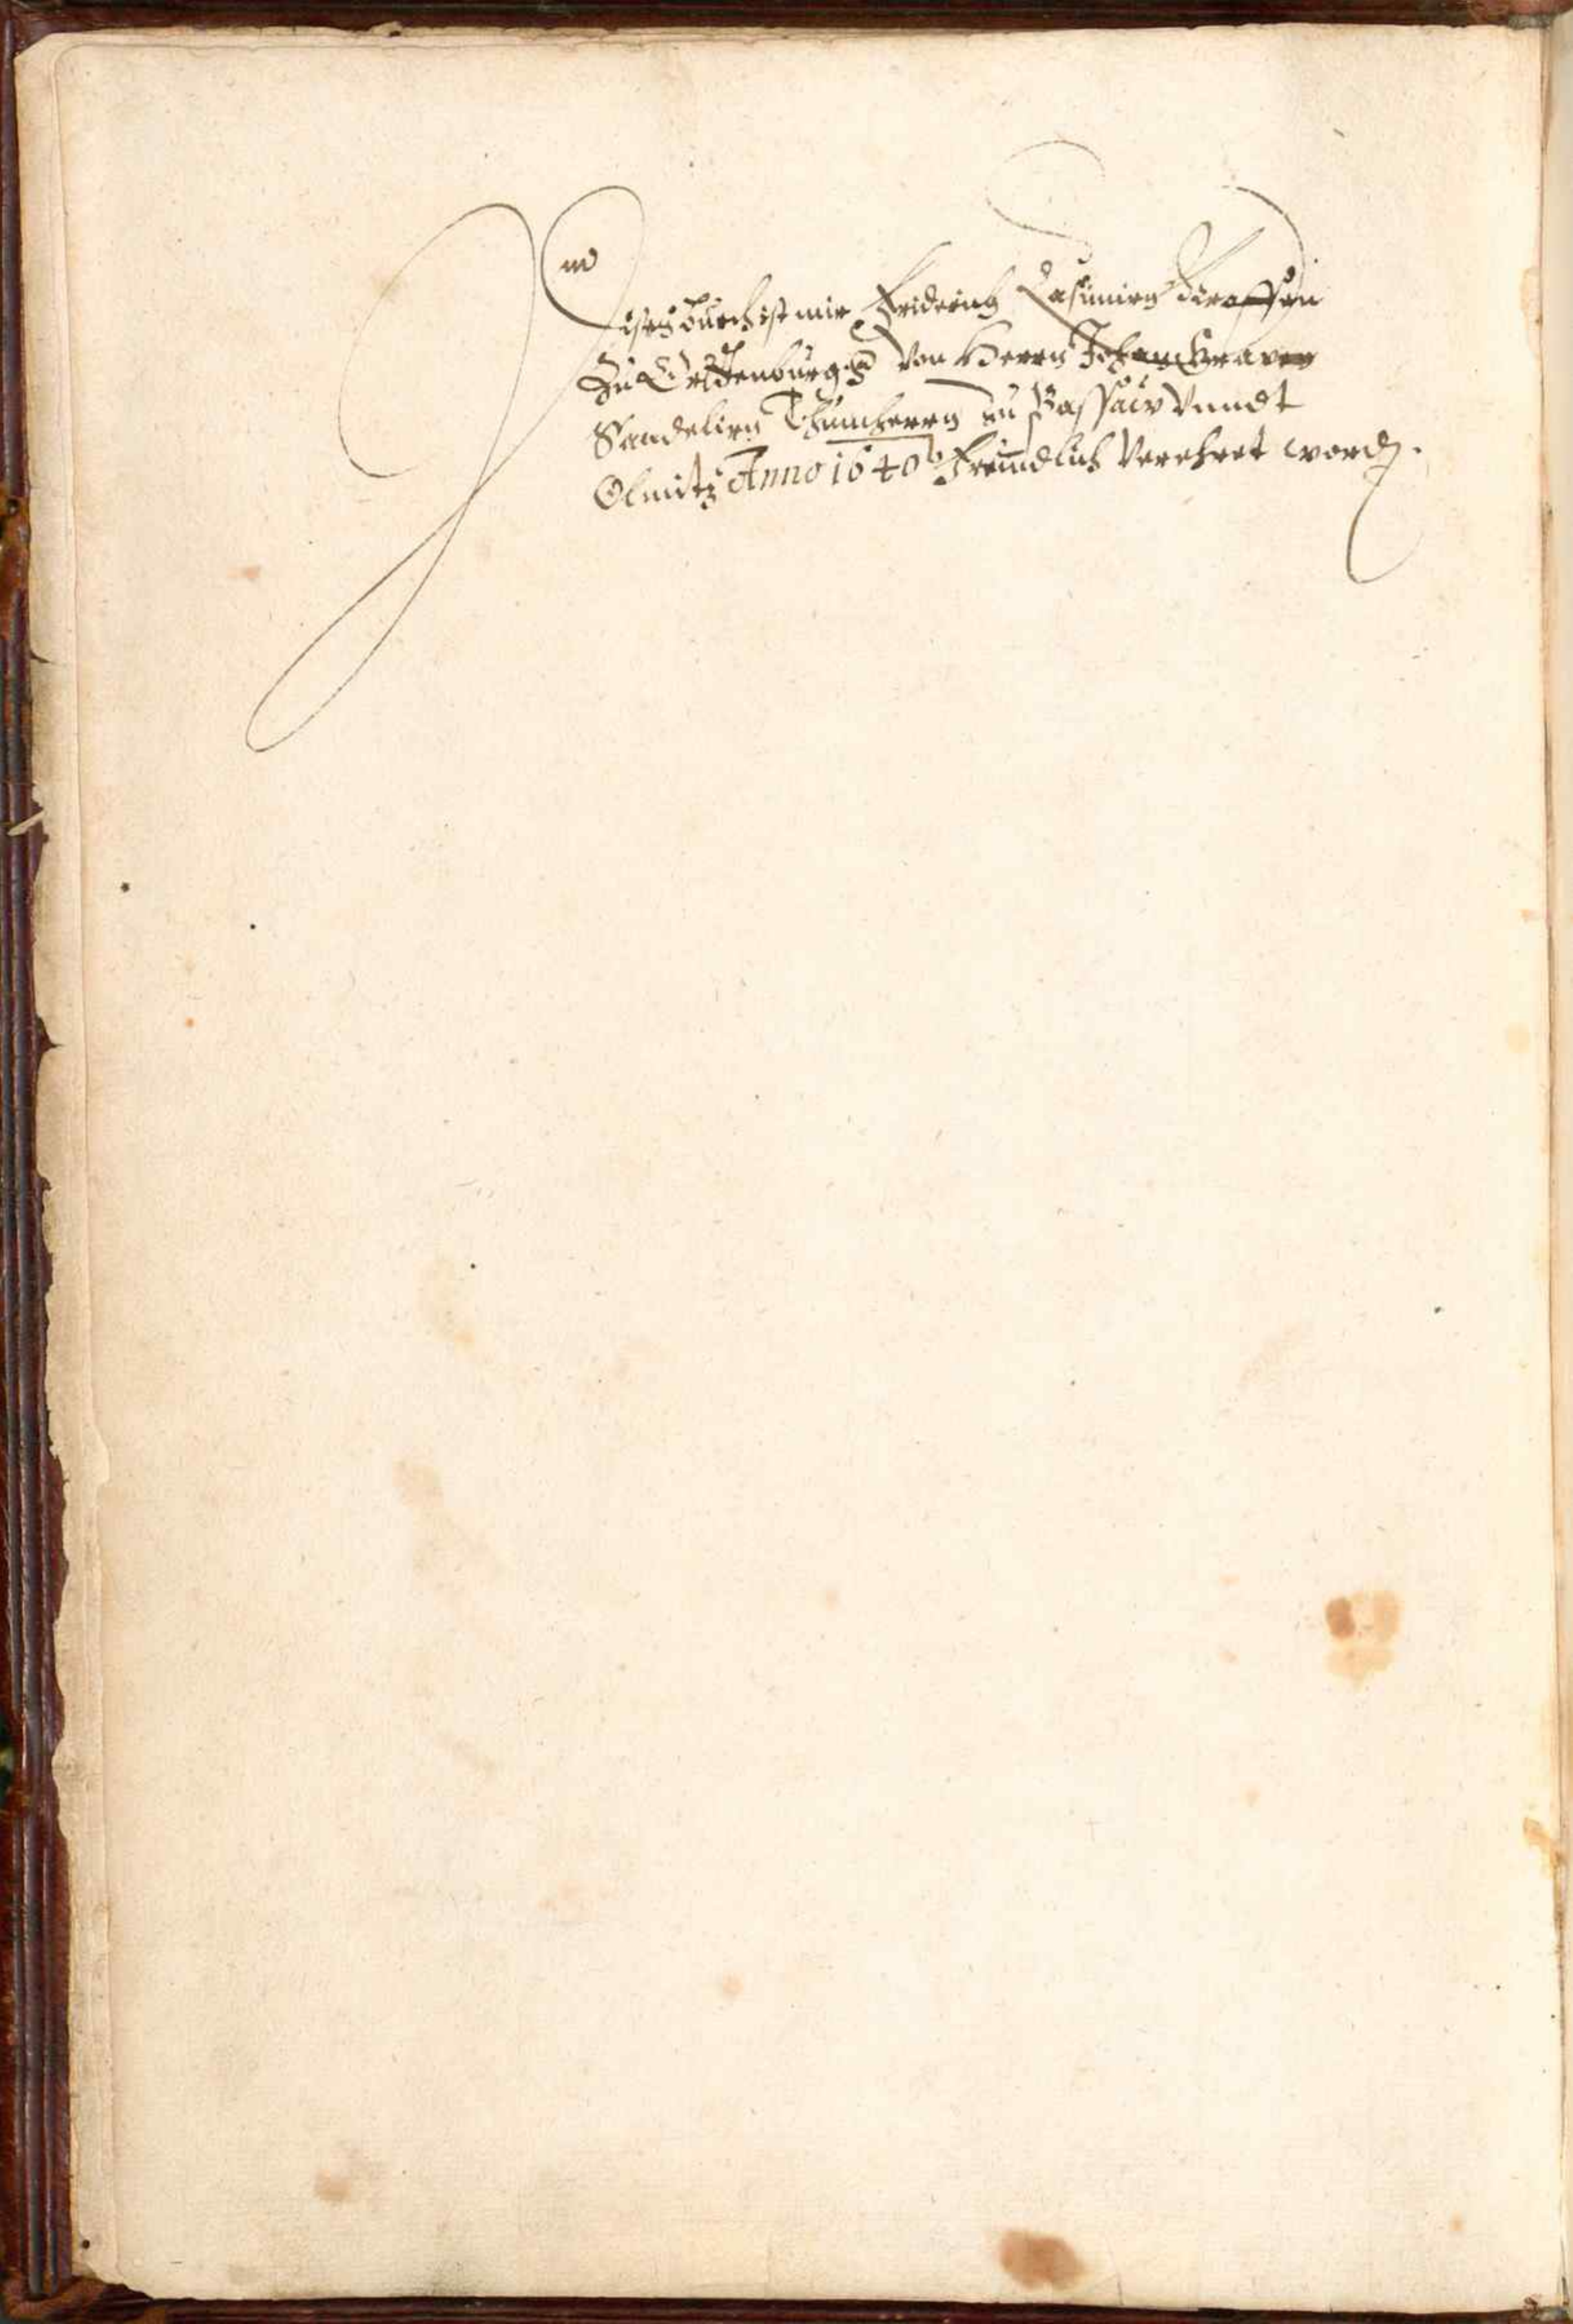 Dises Buech ist mir Friderich Casimirn Graffen
Zu Ortenburg von Herrn Johan
Sandelirn Thumherrn zu Passaw vnndt
Olmitz Anno 1640 Freundlich Verehret word.